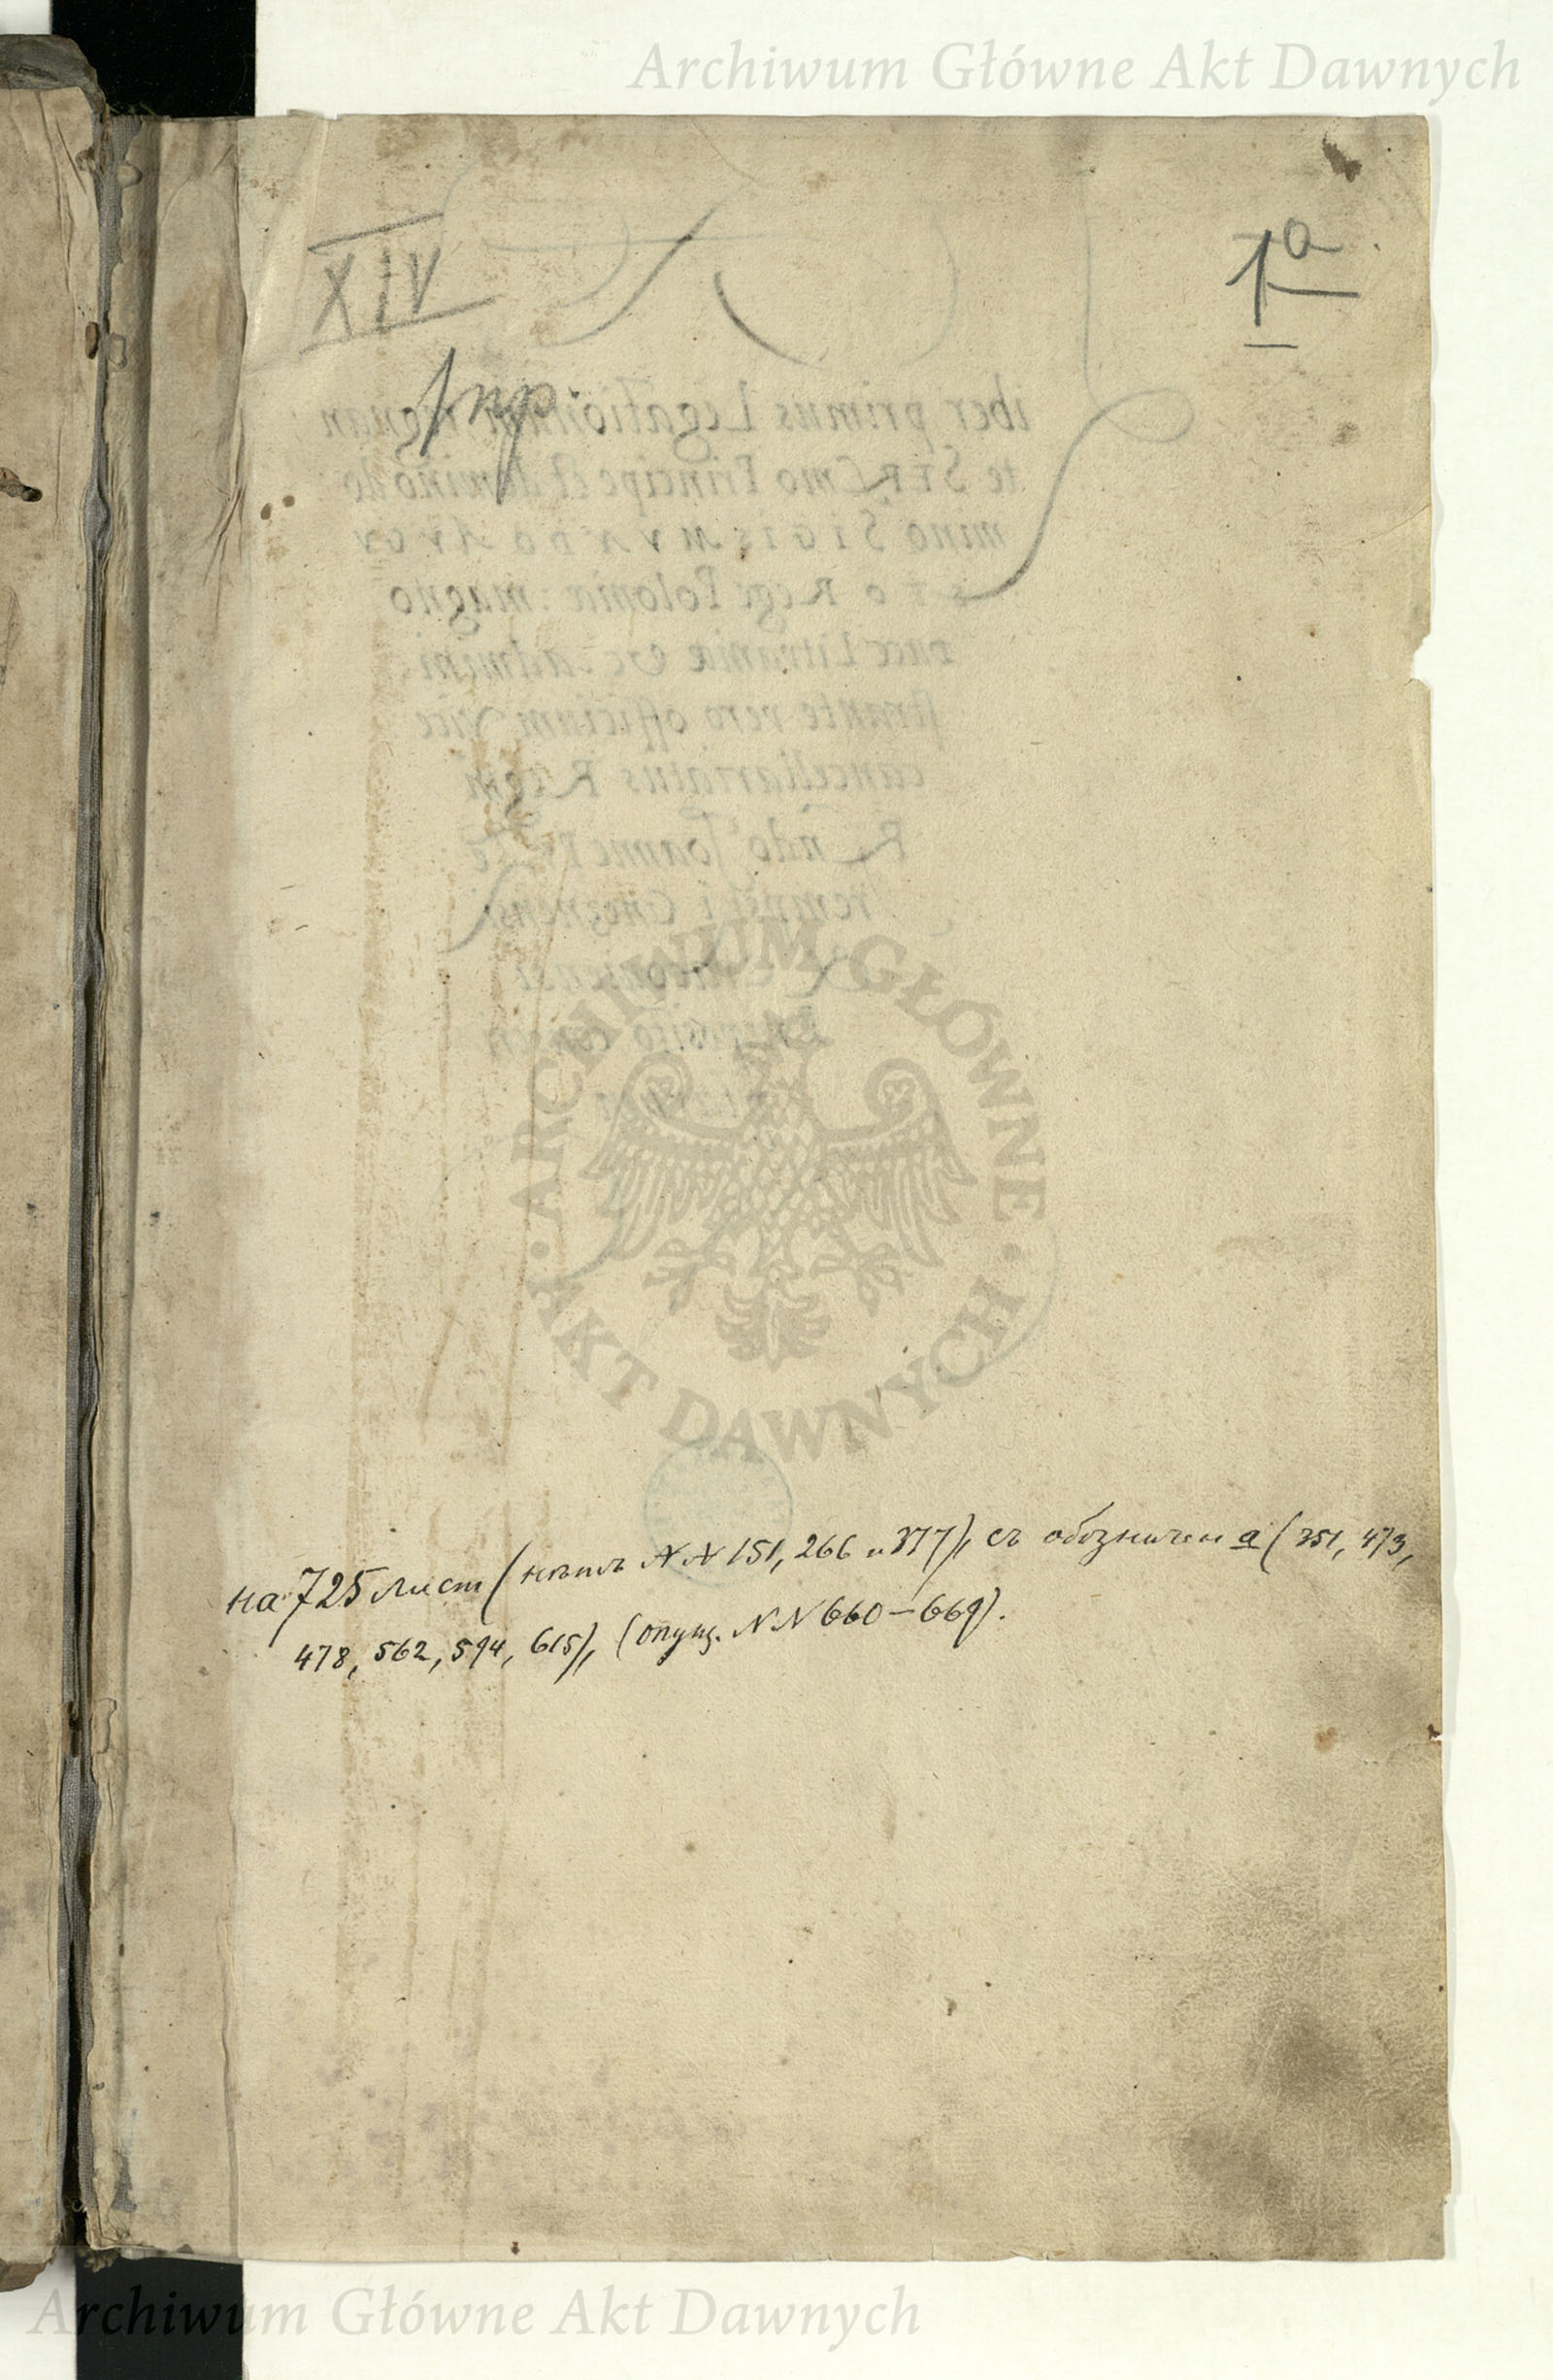 Archiwum Główne Akt Dawnych
XIV
1a
iber primus Legationum regnan
te Sermo Principe et domino do
mino SIGISMVNDO AVGV
STO Rege Poloniæ magno
duce Lituaniæ &c admini
strante vero officium Vice
cancellariatus Regni
Rndo Joanne
Gneznensi
ARCHIWUM GŁÓWNE
AKT DAWNYCH
на 725 лист (нѣтъ NN 151, 266 и 377), съ обозначен а (351, 473,
478, 562, 594, 615), (опущ. NN 660–669).
Archiwum Główne Akt Dawnych